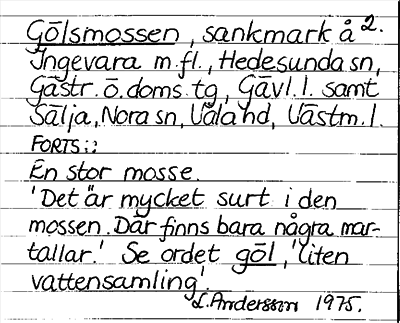 Gölsmossen, sankmark å 2.
Ingevara m.fl., Hedesunda sn,
Gästr. ö. doms. tg, Gävl. l. samt
Sälja, Nora sn, Våla hd, Västm. l.
FORTS.:
En stor mosse.
'Det är mycket surt i den
mossen. Där finns bara några mar-
tallar.' Se ordet göl, 'liten
vattensamling'.
L. Andersson 1975.